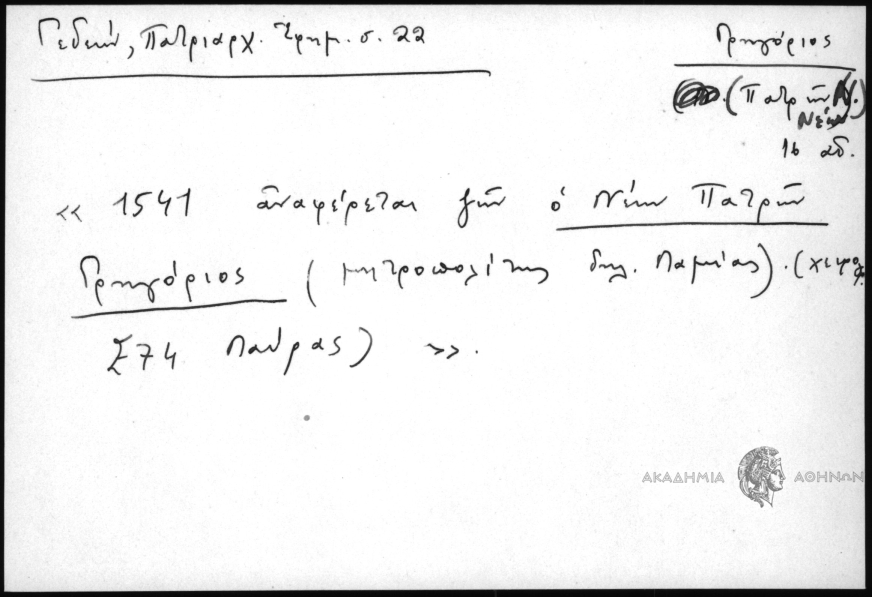 Γεδεών, Πατριαρχ. Ἐφημ. σ. 22
Γρηγόριος
(Πατρῶν Ν.)
Νέων
16 αἰ.
« 1541 ἀναφέρεται ζῶν ὁ Νέων Πατρῶν
Γρηγόριος (μητροπολίτης δηλ. Λαμίας). (χειρογρ.
Σ74 Λαύρας) ».
ΑΚΑΔΗΜΙΑ ΑΘΗΝΩΝ